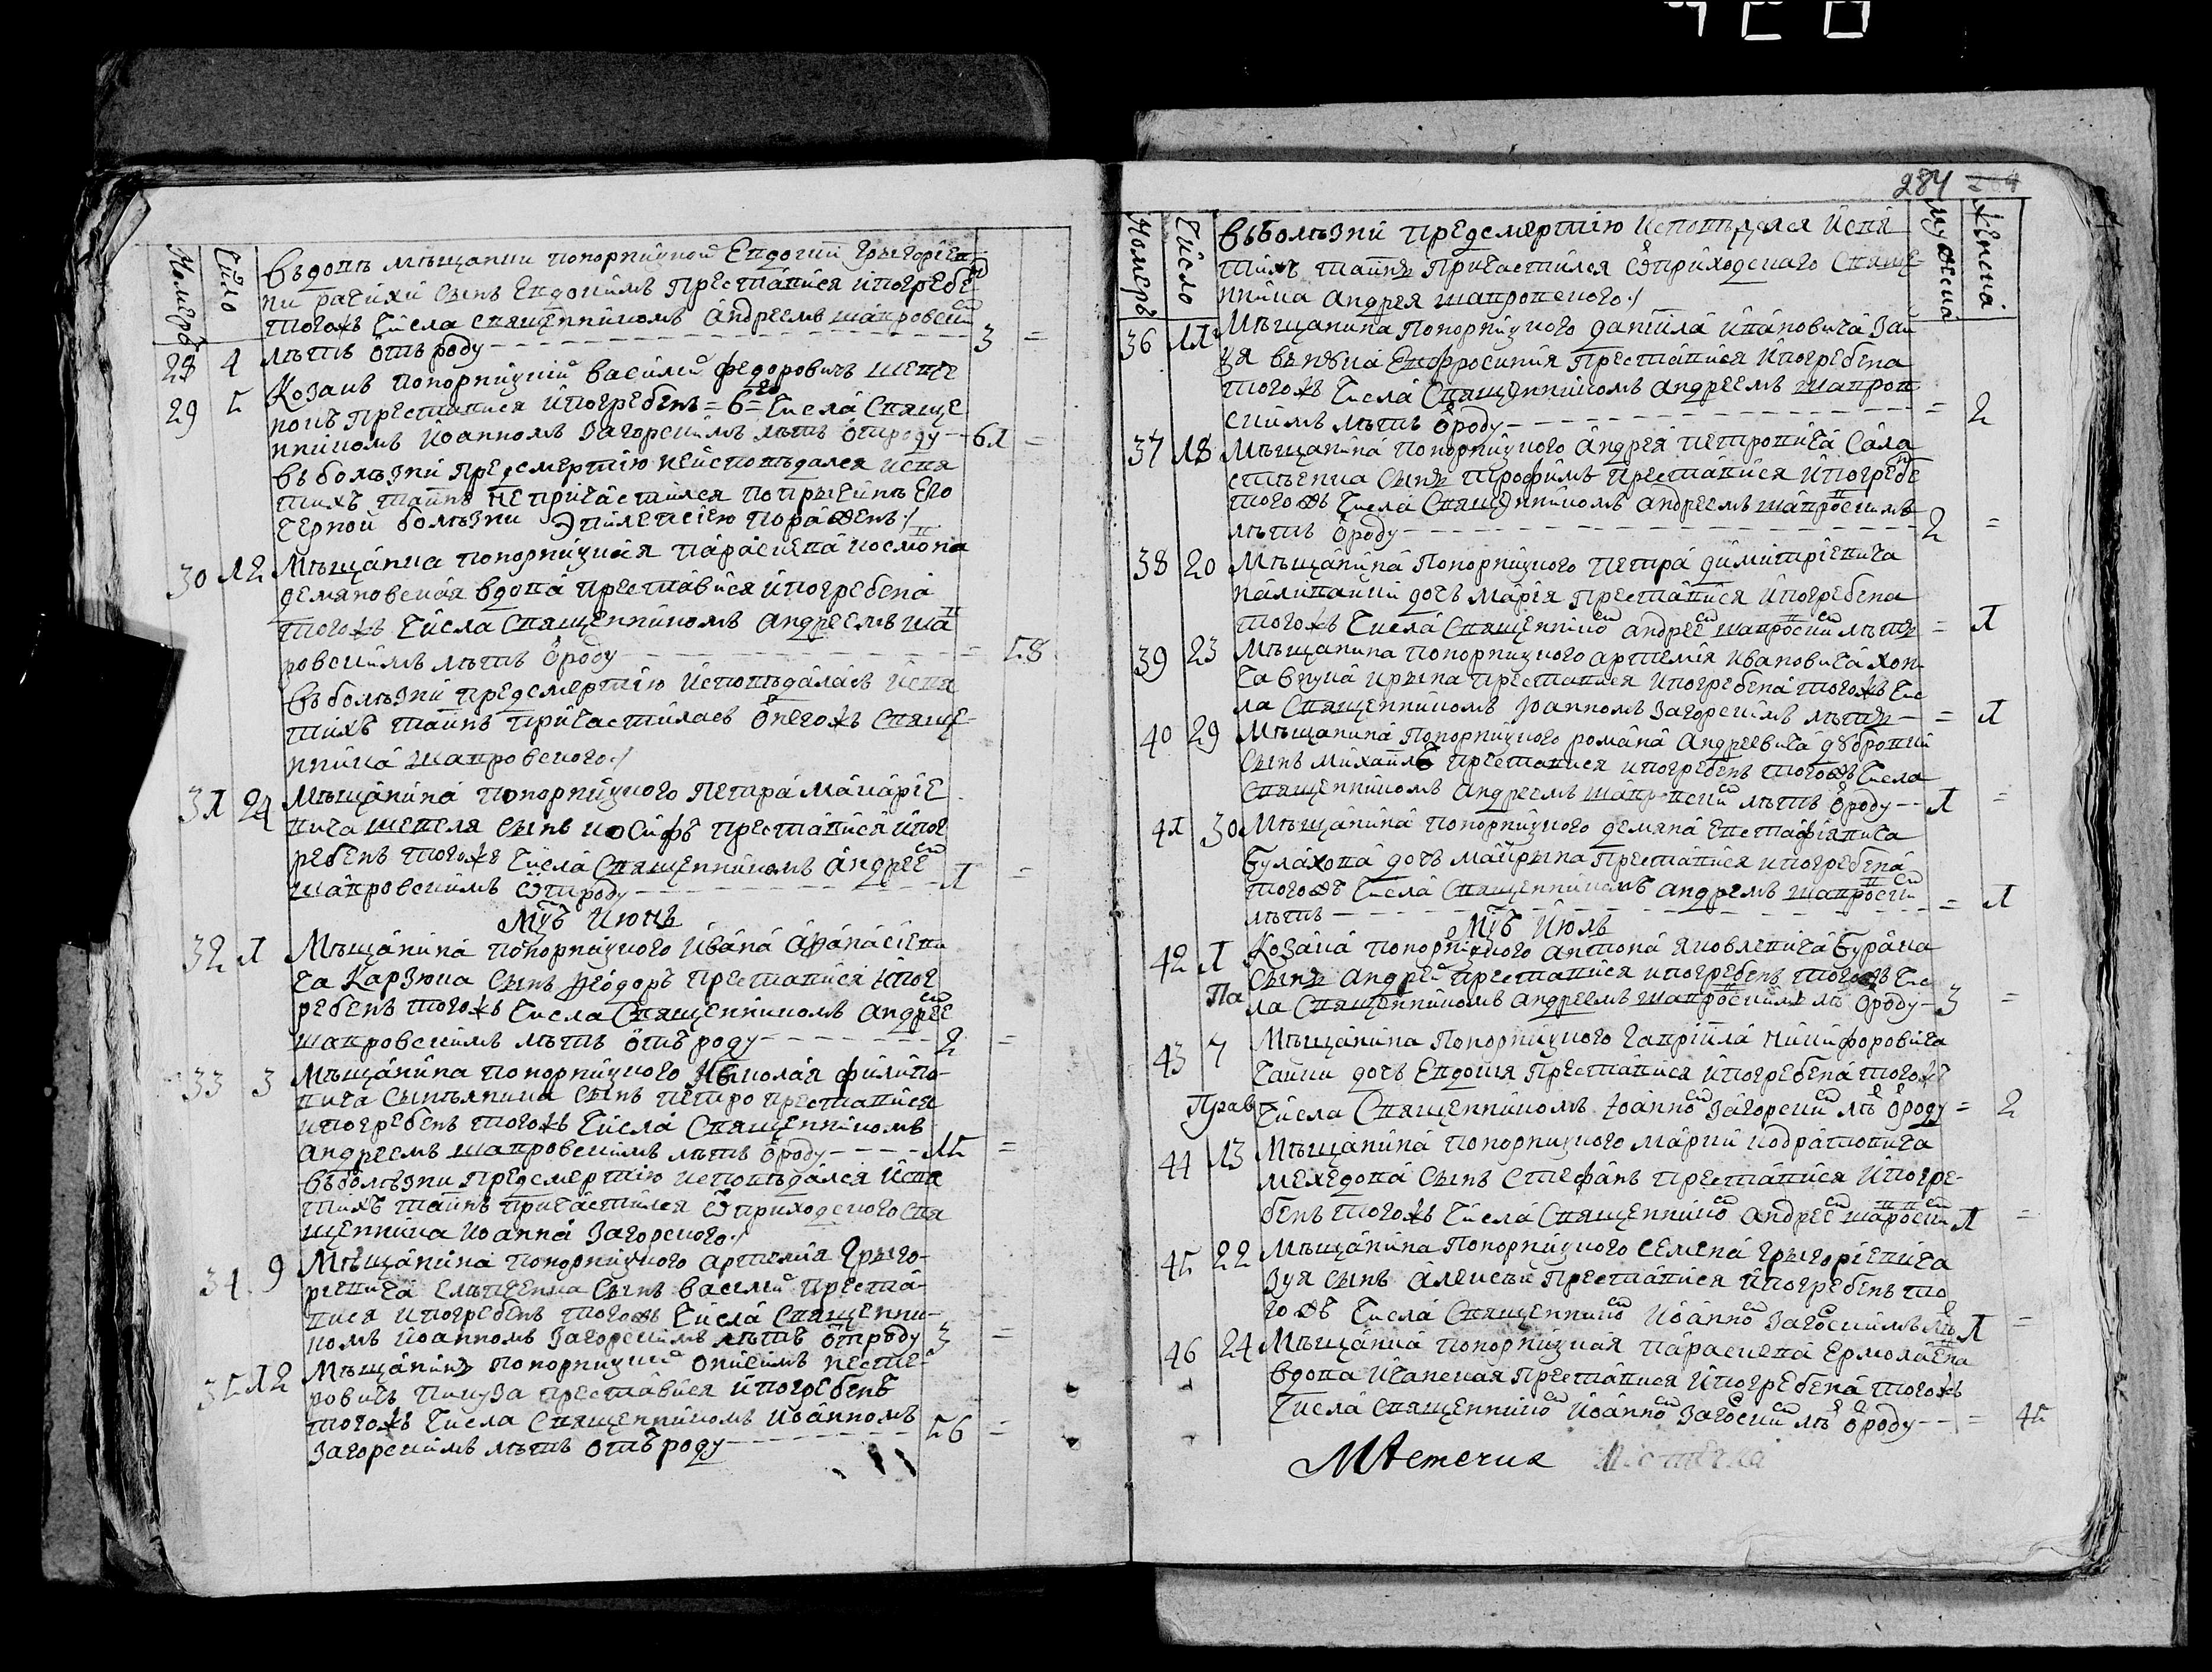 Номеръ Число
въдовѣ мѣщанки поворницкой Евдокіи Григоріев
ни рачихи сынъ Евдокимъ преставися и погребе
тогожъ числа священникомъ Андреемъ шапровски
28 4 лѣтъ ѿ роду 3 =
29 5 Козакъ поворницкій Василій Федоровичъ
преставися и погребенъ = 6 = числа свяще
нникомъ Іоанномъ Загорскимъ лѣтъ ѿ роду 61 =
въ болѣзни предсмертію неисповѣдался и свя
тихъ таинъ непричастился попричинѣ его
черной болѣзни Эпилепсіею пораженъ
30 12 Мѣщанка поворницкая Параскева Космова
демяновская вдова преставися и погребена
тогожъ числа священникомъ Андреемъ ша
ровскимъ лѣтъ ѿ роду = 58
въ болѣзни предсмертію исповѣдалась и свя
тихъ таинъ причастилась ѿ негожъ свяще-
нника шапровского
31 24 Мѣщанина поворницкого Петра Макаріе
вича шевеля сынъ Иосифъ преставися и пог
ребенъ тогожъ числа священникомъ Андрее
шапровскимъ ѿ роду 1 =
Мцъ Июнь
32 1 Мѣщанина поворницкого Ивана Афанасіеви
ча Карзюка сынъ Феодоръ преставися и пог
ребенъ тогожъ числа священникомъ Андрее
шапровскимъ лѣтъ ѿ роду 2 =
33 3 Мѣщанина поворницкого Николая Филипо-
вича сынъ Петро преставися
и погребенъ тогожъ числа священникомъ
Андреемъ шапровскимъ лѣтъ ѿ роду 15 =
въ болѣзни предсмертію исповѣдался и свя
тихъ таинъ причастился ѿ приходского свя
щенника Иоанна Загорского
34 9 Мѣщанина поворницкого Артемія Григо-
риевича сынъ Василій преста-
вися и погребенъ тогожъ числа священни-
комъ Иоанномъ Загорскимъ лѣтъ ѿ роду 3 =
35 12 Мѣщанинъ поворницкій Онисимъ Несте-
ровичъ преставися и погребенъ
тогожъ числа священникомъ Иоанномъ
Загорскимъ лѣтъ ѿ роду 56 =
284
Номеръ Число Мужска Женска
въ болѣзни предсмертію исповѣдался и свя
тихъ таинъ причастился ѿ приходскаго свяще-
нника Андрея шапровского
36 Мѣщанина поворницкого Даніила Ивановича Зай
внука Евфросинія преставися и погребена
тогожъ числа священникомъ Андреемъ шапров
скимъ лѣтъ ѿ роду = 2
37 18 Мѣщанина поворницкого Андрея Петровича
сынъ Трофимъ преставися и погребе
тогожъ числа священникомъ Андреемъ шапроскимъ
лѣтъ ѿ роду 2 =
38 20 Мѣщанина поворницкого Петра Димитріевича
дочь Марія преставися и погребена
тогожъ числа священнико Андрее шапроски лѣтъ = 1
39 23 Мѣщанина поворницкого Артемія Ивановича
внука Ирина преставися и погребена тогожъ чис
ла священникомъ Іоанномъ Загорскимъ лѣтъ = 1
40 29 Мѣщанина поворницкого Романа Андреевича
сынъ Михаилъ преставися и погребенъ тогожъ числа
священникомъ Андреемъ шапровски лѣтъ ѿ роду 1 =
41 30 Мѣщанина поворницкого Демяна Евстафіевича
Булахова дочь Маврина преставися и погребена
тогожъ числа священникомъ Андреемъ шапроски
лѣтъ = 1
Мцъ Июль
42 1 Козака поворницкого Антона Яковлевича Бурака
сынъ Андрей преставися и погребенъ тогожъ чис
ла священникомъ Андреемъ шапроскимъ лѣ ѿ роду 3 =
43 7 Мѣщанина поворницкого Гавріила Никифоровича
Чайки дочь Евдокія преставися и погребена тогожъ
числа священникомъ Іоанно Загорски лѣ ѿ роду = 2
44 13 Мѣщанина поворницкого Марка Кодратовича
Мехедова сынъ Стефанъ преставися и погре-
бенъ тогожъ числа священнико Андрее шапроски 1 =
45 22 Мѣщанина поворницкого Семена Григоріевича
Зуя сынъ Алексѣй преставися и погребенъ то
гожъ числа священнико Иоанно Загоскимъ лѣ 1 =
46 24 Мѣщанка поворницкая Параскева Ермолаева
вдова преставися и погребена тогожъ
числа священнико Иоанно Загоски лѣ ѿ роду = 45